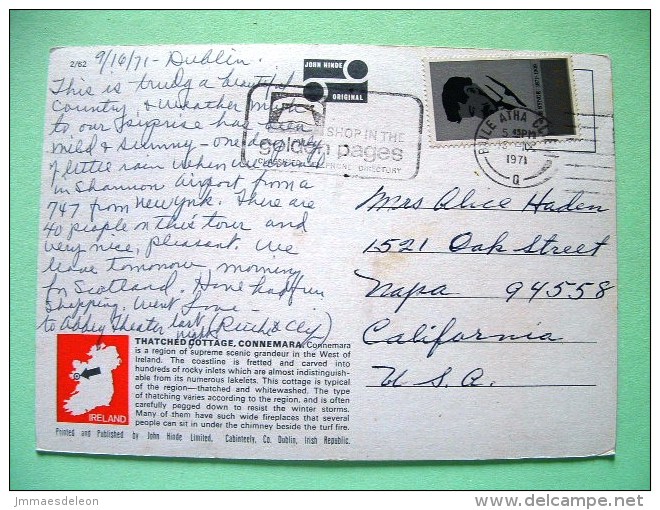 2/62
9/16/71 - Dublin.
This is truly a beautiful
Country & Weather much
to our surprise has been
mild & sunny - one day only
of little rain when we
in Shannon airport from a
747 from New York. There are
40 people on this tour and
very nice, pleasant. We
leave tomorrow morning
for Scotland. Have had fun
shopping. Went
to Abbey Theater last night
Love -
JOHN HINDE
ORIGINAL
SHOP IN THE
golden pages
DIRECTORY
BAILE ATHA
5 45PM
1971
Q
Mrs Alice Haden
1521 Oak Street
Napa 94558
California
U.S.A.
THATCHED COTTAGE, CONNEMARA. Connemara
is a region of supreme scenic grandeur in the West of
Ireland. The coastline is fretted and carved into
hundreds of rocky inlets which are almost indistinguish-
able from its numerous lakelets. This cottage is typical
of the region—thatched and whitewashed. The type
of thatching varies according to the region, and is often
carefully pegged down to resist the winter storms.
Many of them have such wide fireplaces that several
people can sit in under the chimney beside the turf fire.
IRELAND
Printed and Published by John Hinde Limited, Cabinteely, Co. Dublin, Irish Republic.
jmmaesdeleon
delcampe.net